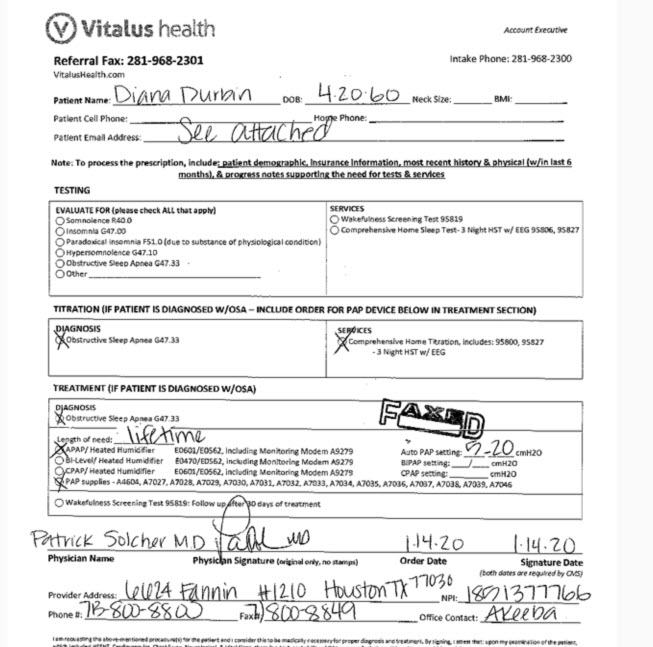 Vitalus health
Account Executive
Referral Fax: 281-968-2301 Intake Phone: 281-968-2300
VitalusHealth.com
Patient Name: Diana Durbin DOB: 4-20-60 Neck Size: BMI:
Patient Cell Phone: Home Phone:
Patient Email Address: See attached
Note: To process the prescription, include: patient demographic, insurance information, most recent history & physical (w/in last 6
months), & progress notes supporting the need for tests & services
TESTING
EVALUATE FOR (please check ALL that apply)
Somnolence R40.0
Insomnia G47.00
Paradoxical insomnia F51.0 (due to substance of physiological condition)
Hypersomnolence G47.10
Obstructive Sleep Apnea G47.33
Other
SERVICES
Wakefulness Screening Test 95819
Comprehensive Home Sleep Test- 3 Night HST w/ EEG 95806, 95827
TITRATION (IF PATIENT IS DIAGNOSED W/OSA – INCLUDE ORDER FOR PAP DEVICE BELOW IN TREATMENT SECTION)
DIAGNOSIS
Obstructive Sleep Apnea G47.33
SERVICES
Comprehensive Home Titration, includes: 95800, 95827
- 3 Night HST w/ EEG
TREATMENT (IF PATIENT IS DIAGNOSED W/OSA)
DIAGNOSIS
Obstructive Sleep Apnea G47.33
FAXED
Length of need: lifetime
APAP/ Heated Humidifier E0601/E0562, including Monitoring Modem A9279 Auto PAP setting: 5-20 cmH2O
Bi-Level/ Heated Humidifier E0470/E0562, including Monitoring Modem A9279 BiPAP setting: / cmH2O
CPAP/ Heated Humidifier E0601/E0562, including Monitoring Modem A9279 CPAP setting: cmH2O
PAP supplies - A4604, A7027, A7028, A7029, A7030, A7031, A7032, A7033, A7034, A7035, A7036, A7037, A7038, A7039, A7046
Wakefulness Screening Test 95819: Follow up after 30 days of treatment
Patrick Solcher MD 1-14-20 1-14-20
Physician Name Physician Signature (original only, no stamps) Order Date Signature Date
(both dates are required by CMS)
Provider Address: 6624 Fannin #1210 Houston TX 77030 NPI: 1851377766
Phone #: 713-800-8800 Fax# 800-8849 Office Contact: Akeeba
I am requesting the above-mentioned procedure(s) for the patient and I consider this to be medically necessary for proper diagnosis and treatment. By signing, I attest that: upon my examination of the patient,